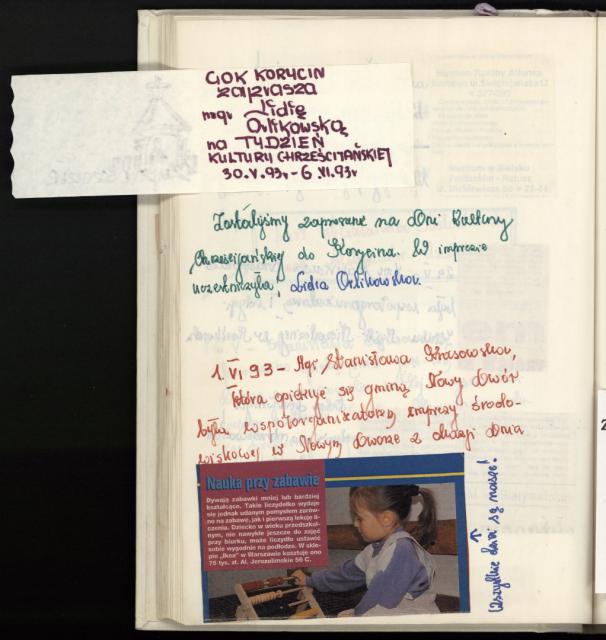 GOK KORYCIN
zaprasza
mgr Lidię
Orlikowską
na TYDZIEŃ
KULTURY CHRZEŚCIJAŃSKIEJ
30.V.93r - 6.VI.93r
Zostaliśmy zaproszeni na Dni Kultury
Chrześcijańskiej do Korycina. W imprezie
uczestniczyła Lidia Orlikowska.
1 VI 93 - Mgr Stanisława Krasowska,
która opiekuje się gminą Nowy Dwór
była współorganizatorką imprezy środo-
wiskowej w Nowym Dworze z okazji Dnia
Nauka przy zabawie
Bywają zabawki mniej lub bardziej
kształcące. Takie liczydełko wydaje
się jednak udanym pomysłem zarów-
no na zabawę, jak i pierwszą lekcję li-
czenia. Dziecko w wieku przedszkol-
nym, nie nawykłe jeszcze do zajęć
przy biurku, może liczydło ustawić
sobie wygodnie na podłodze. W skle-
pie „Ikea” w Warszawie kosztuje ono
75 tys. zł. Al. Jerozolimskie 56 C.
Wszystkie dzieci są nasze!